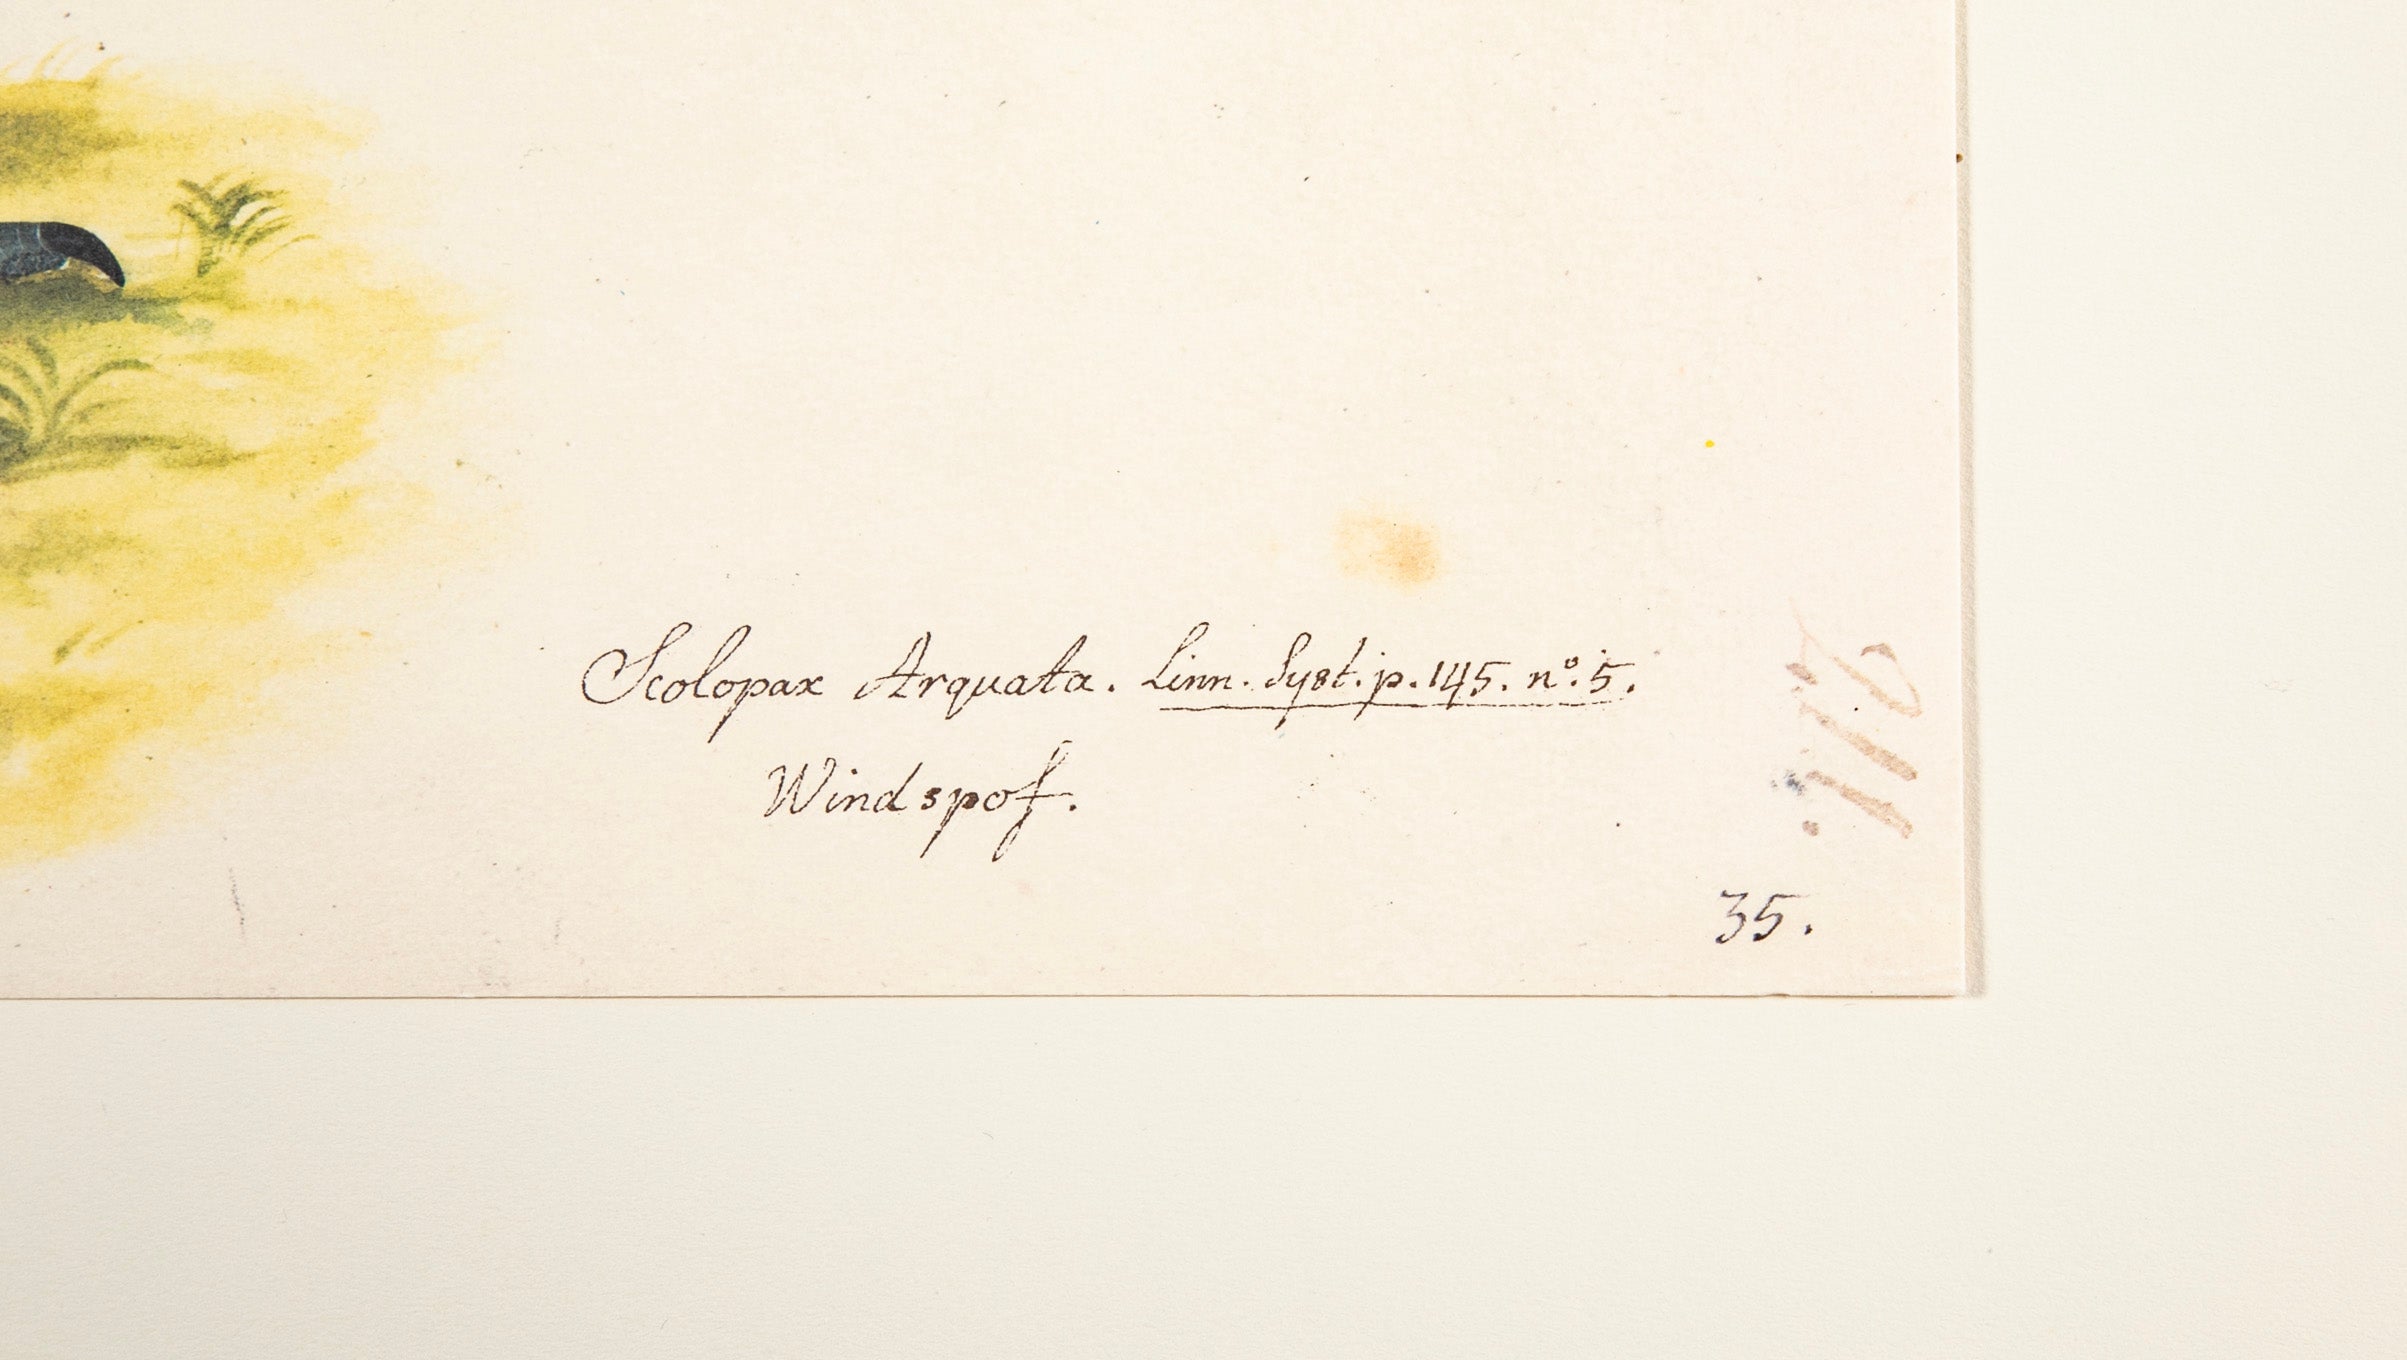 Scolopax Arquata. Linn. Syst. p. 145. nº. 5.
Windspof.
35.